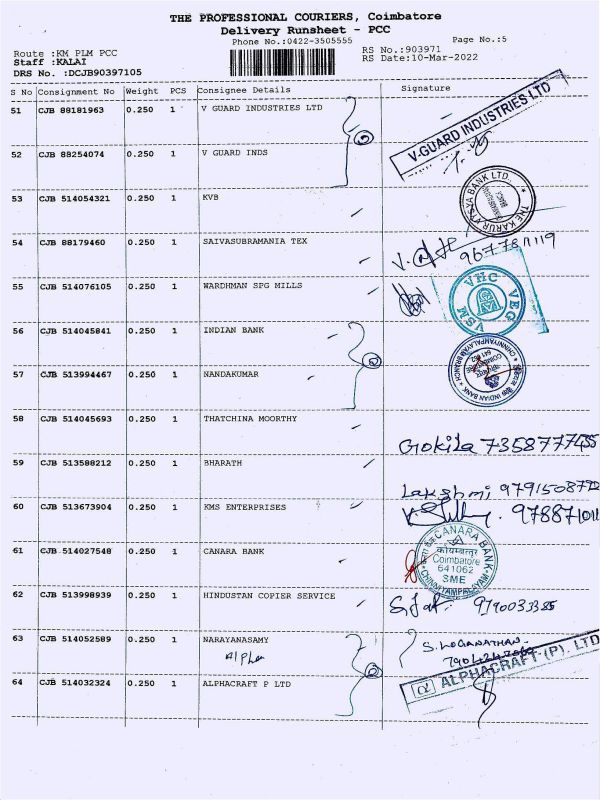 THE PROFESSIONAL COURIERS, Coimbatore
Delivery Runsheet - PCC
Phone No.:0422-3505555
Page No.:5
Route :KM PLM PCC
RS No.:903971
Staff :KALAI
RS Date:10-Mar-2022
DRS No. :DCJB90397105
S No Consignment No Weight PCS Consignee Details Signature
51 CJB 88181963 0.250 1 V GUARD INDUSTRIES LTD
V-GUARD INDUSTRIES LTD
52 CJB 88254074 0.250 1 V GUARD INDS
53 CJB 514054321 0.250 1 KVB
THE KARUR VYSYA BANK LTD.
54 CJB 88179460 0.250 1 SAIVASUBRAMANIA TEX
55 CJB 514076105 0.250 1 WARDHMAN SPG MILLS
VSM VHC VEG
56 CJB 514045841 0.250 1 INDIAN BANK
INDIAN BANK CHINNIYAMPALAYAM BRANCH
57 CJB 513994467 0.250 1 NANDAKUMAR
58 CJB 514045693 0.250 1 THATCHINA MOORTHY
Gokila
59 CJB 513588212 0.250 1 BHARATH
Lakshmi
60 CJB 513673904 0.250 1 KMS ENTERPRISES
61 CJB 514027548 0.250 1 CANARA BANK
CANARA BANK
कोयम्बत्तूर
Coimbatore
641062
SME
62 CJB 513998939 0.250 1 HINDUSTAN COPIER SERVICE
9790033385
63 CJB 514052589 0.250 1 NARAYANASAMY
Alpha
S. LOGANATHAN
64 CJB 514032324 0.250 1 ALPHACRAFT P LTD
ALPHACRAFT (P). LTD